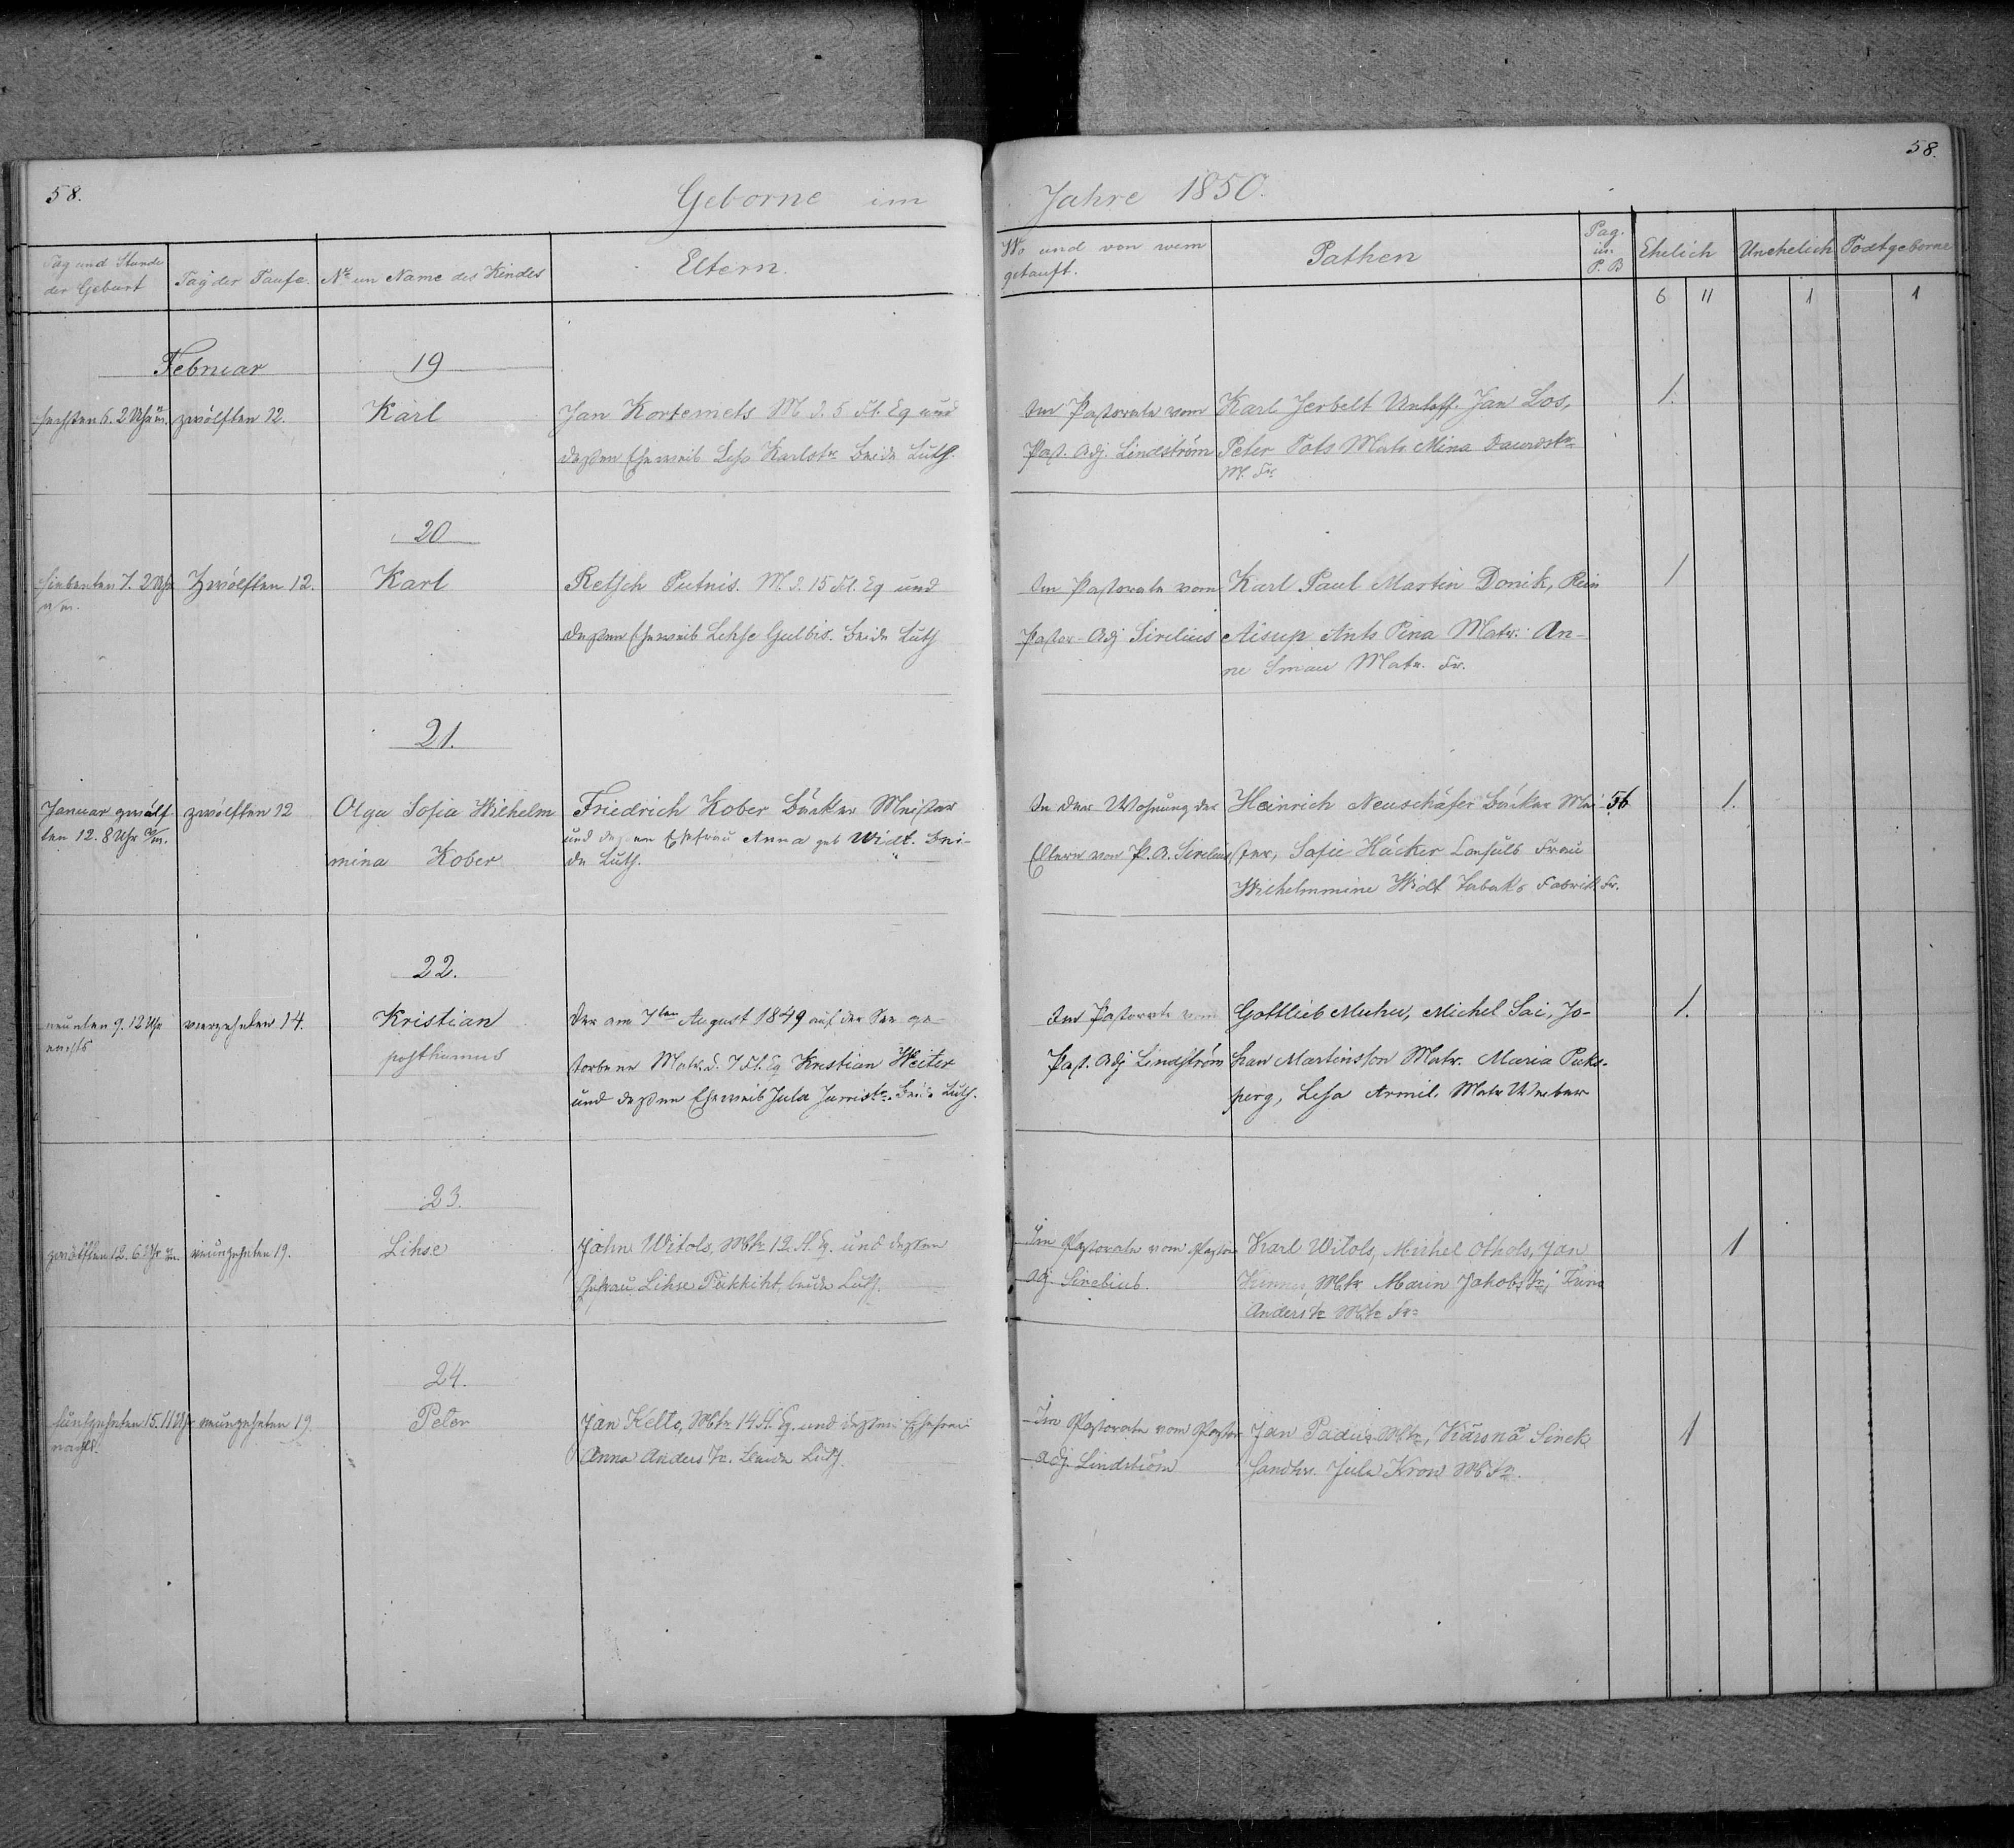 58.
Geborne im
Jahre 1850.
58.
Tag und Stunde der Geburt
Tag der Taufe.
No un Name des Kindes
Eltern.
Wo und von wem getauft.
Pathen
Pag. im P. B
Ehelich
Unehelich
Todtgeborne
6 11 1 1
Februar
19
sechsten 6. 2 Uhr
zwölften 12.
Karl
Jan Kortemets M. d. 5 Fl. Eq und
deßen Eheweib Karlstr beide Luth.
Im Pastorate vom
Past. Adj. Lindström
Karl Jerbelt Jan Los,
Peter Pots Matr Mina
M. Fr.
1.
20
siebenten 7. 2 Uhr
Zwölften 12.
Karl
Retsch Putnis. M. d. 15 Fl. Eq und
deßen Eheweib Lehse Gulbis. beide Luth
Im Pastorate vom
Pastor-Adj Sirelius
Karl Paul Martin Donik, Rein
Aisup Ants Pina Matr. An-
ne Smau Matr. Fr.
1
21.
Januar zwölf-
ten 12. 8 Uhr
zwölften 12
Olga Sofia Wilhelm
mina Kober
Friedrich Kober Bäcker Meister
und dessen Ehefrau Anna geb Widt. bei-
de Luth.
In der Wohnung der
Eltern von P. A. Sirelius
Heinrich Neuschäfer Bäcker Mei-
ster, Sofie Häcker Consuls Frau
Wilhelmmine Widt Tabaks Fabrik. Fr.
56
1.
22.
neunten 9. 12 Uhr
nachts
vierzehnten 14.
Kristian
posthumus
Der am 7ten August 1849 auf der See ge-
storbene Matr. d. 7 Fl. Eq Kristian Weiter
und deßen Eheweib Jula beide Luth.
Im Pastorate vom
Past. Adj Lindström
Gottlieb Muhu, Michel Sai, Jo-
han Martinsson Matr. Maria Puks-
perg, Lesa Armil. Matr Weiber
1.
23.
zwölften 12. 6 Uhr
neunzehnten 19.
Lihse
Jahn Witols, Mtr 12 Fl. Eq. und deßen
Ehefrau Lihse Pukkiht, beide Luth.
Im Pastorate vom Pastor
Adj. Sirelius.
Karl Witols, Michel Othols, Jan
Mtr Marin Jakobs Tr, Trina
Anders Tr Mtr Fr
1
24.
funfzehnten 15. 11 Uhr
nachts.
neunzehnten 19
Peter
Jan Kelto, Mtr 14 Fl. Eq. und deßen Ehefrau
Anna Anders Tr. beide Luth.
Im Pastorate vom Pastor
Adj. Lindström
Jan Padu Mtr, Kärsna Sinek
Jula Kron M Fr.
1